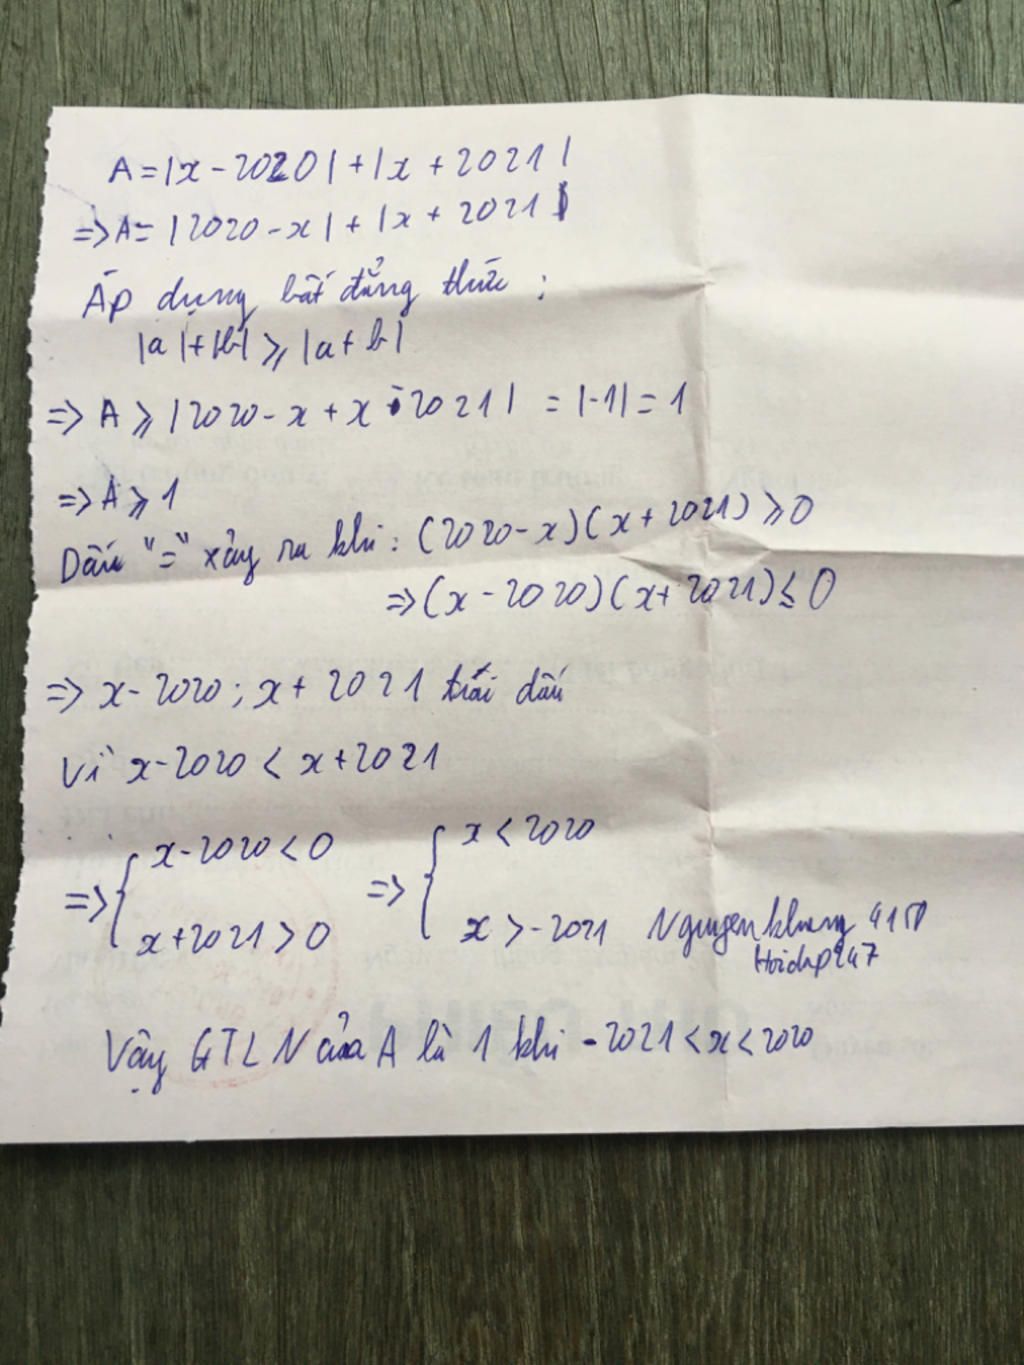 A = |x - 2020| + |x + 2021|
=> A = |2020 - x| + |x + 2021|
Áp dụng bất đẳng thức :
|a| + |b| ⩾ |a + b|
=> A ⩾ |2020 - x + x - 2021| = |-1| = 1
=> A ⩾ 1
Dấu "=" xảy ra khi: (2020 - x)(x + 2021) ⩾ 0
=> (x - 2020)(x + 2021) ≤ 0
=> x - 2020 ; x + 2021 trái dấu
Vì x - 2020 < x + 2021
=> { x - 2020 < 0 => { x < 2020
x + 2021 > 0 x > -2021 Nguyenkhang
Hoidap247
Vậy GTLN của A là 1 khi -2021 < x < 2020